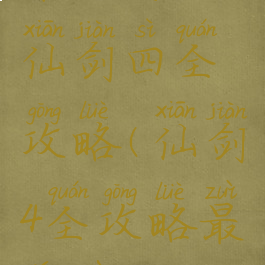 xiān jiàn sì quán
仙剑四全
gōng lüè xiān jiàn
攻略(仙剑
quán gōng lüè zuì
4全攻略最